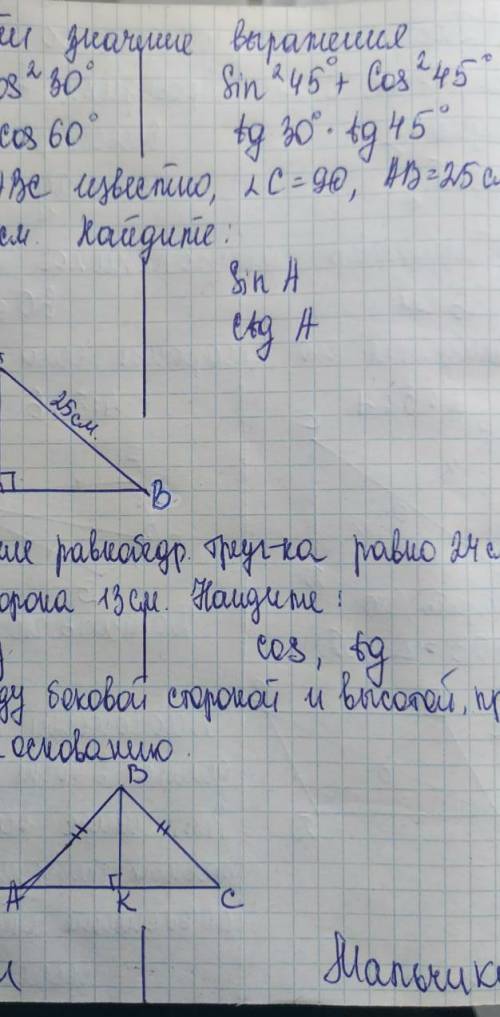 значение выражения
cos²30° sin²45° + cos²45°
cos 60° tg 30° · tg 45°
ABC известно, ∠C=90, AB=25 см
см. Найдите:
sin A
ctg A
25 см.
B
равнобедр. треуг-ка равно 24 см
13 см. Найдите:
cos, tg
боковой стороной и высотой,
основанию.
B
A K C
Мальчики